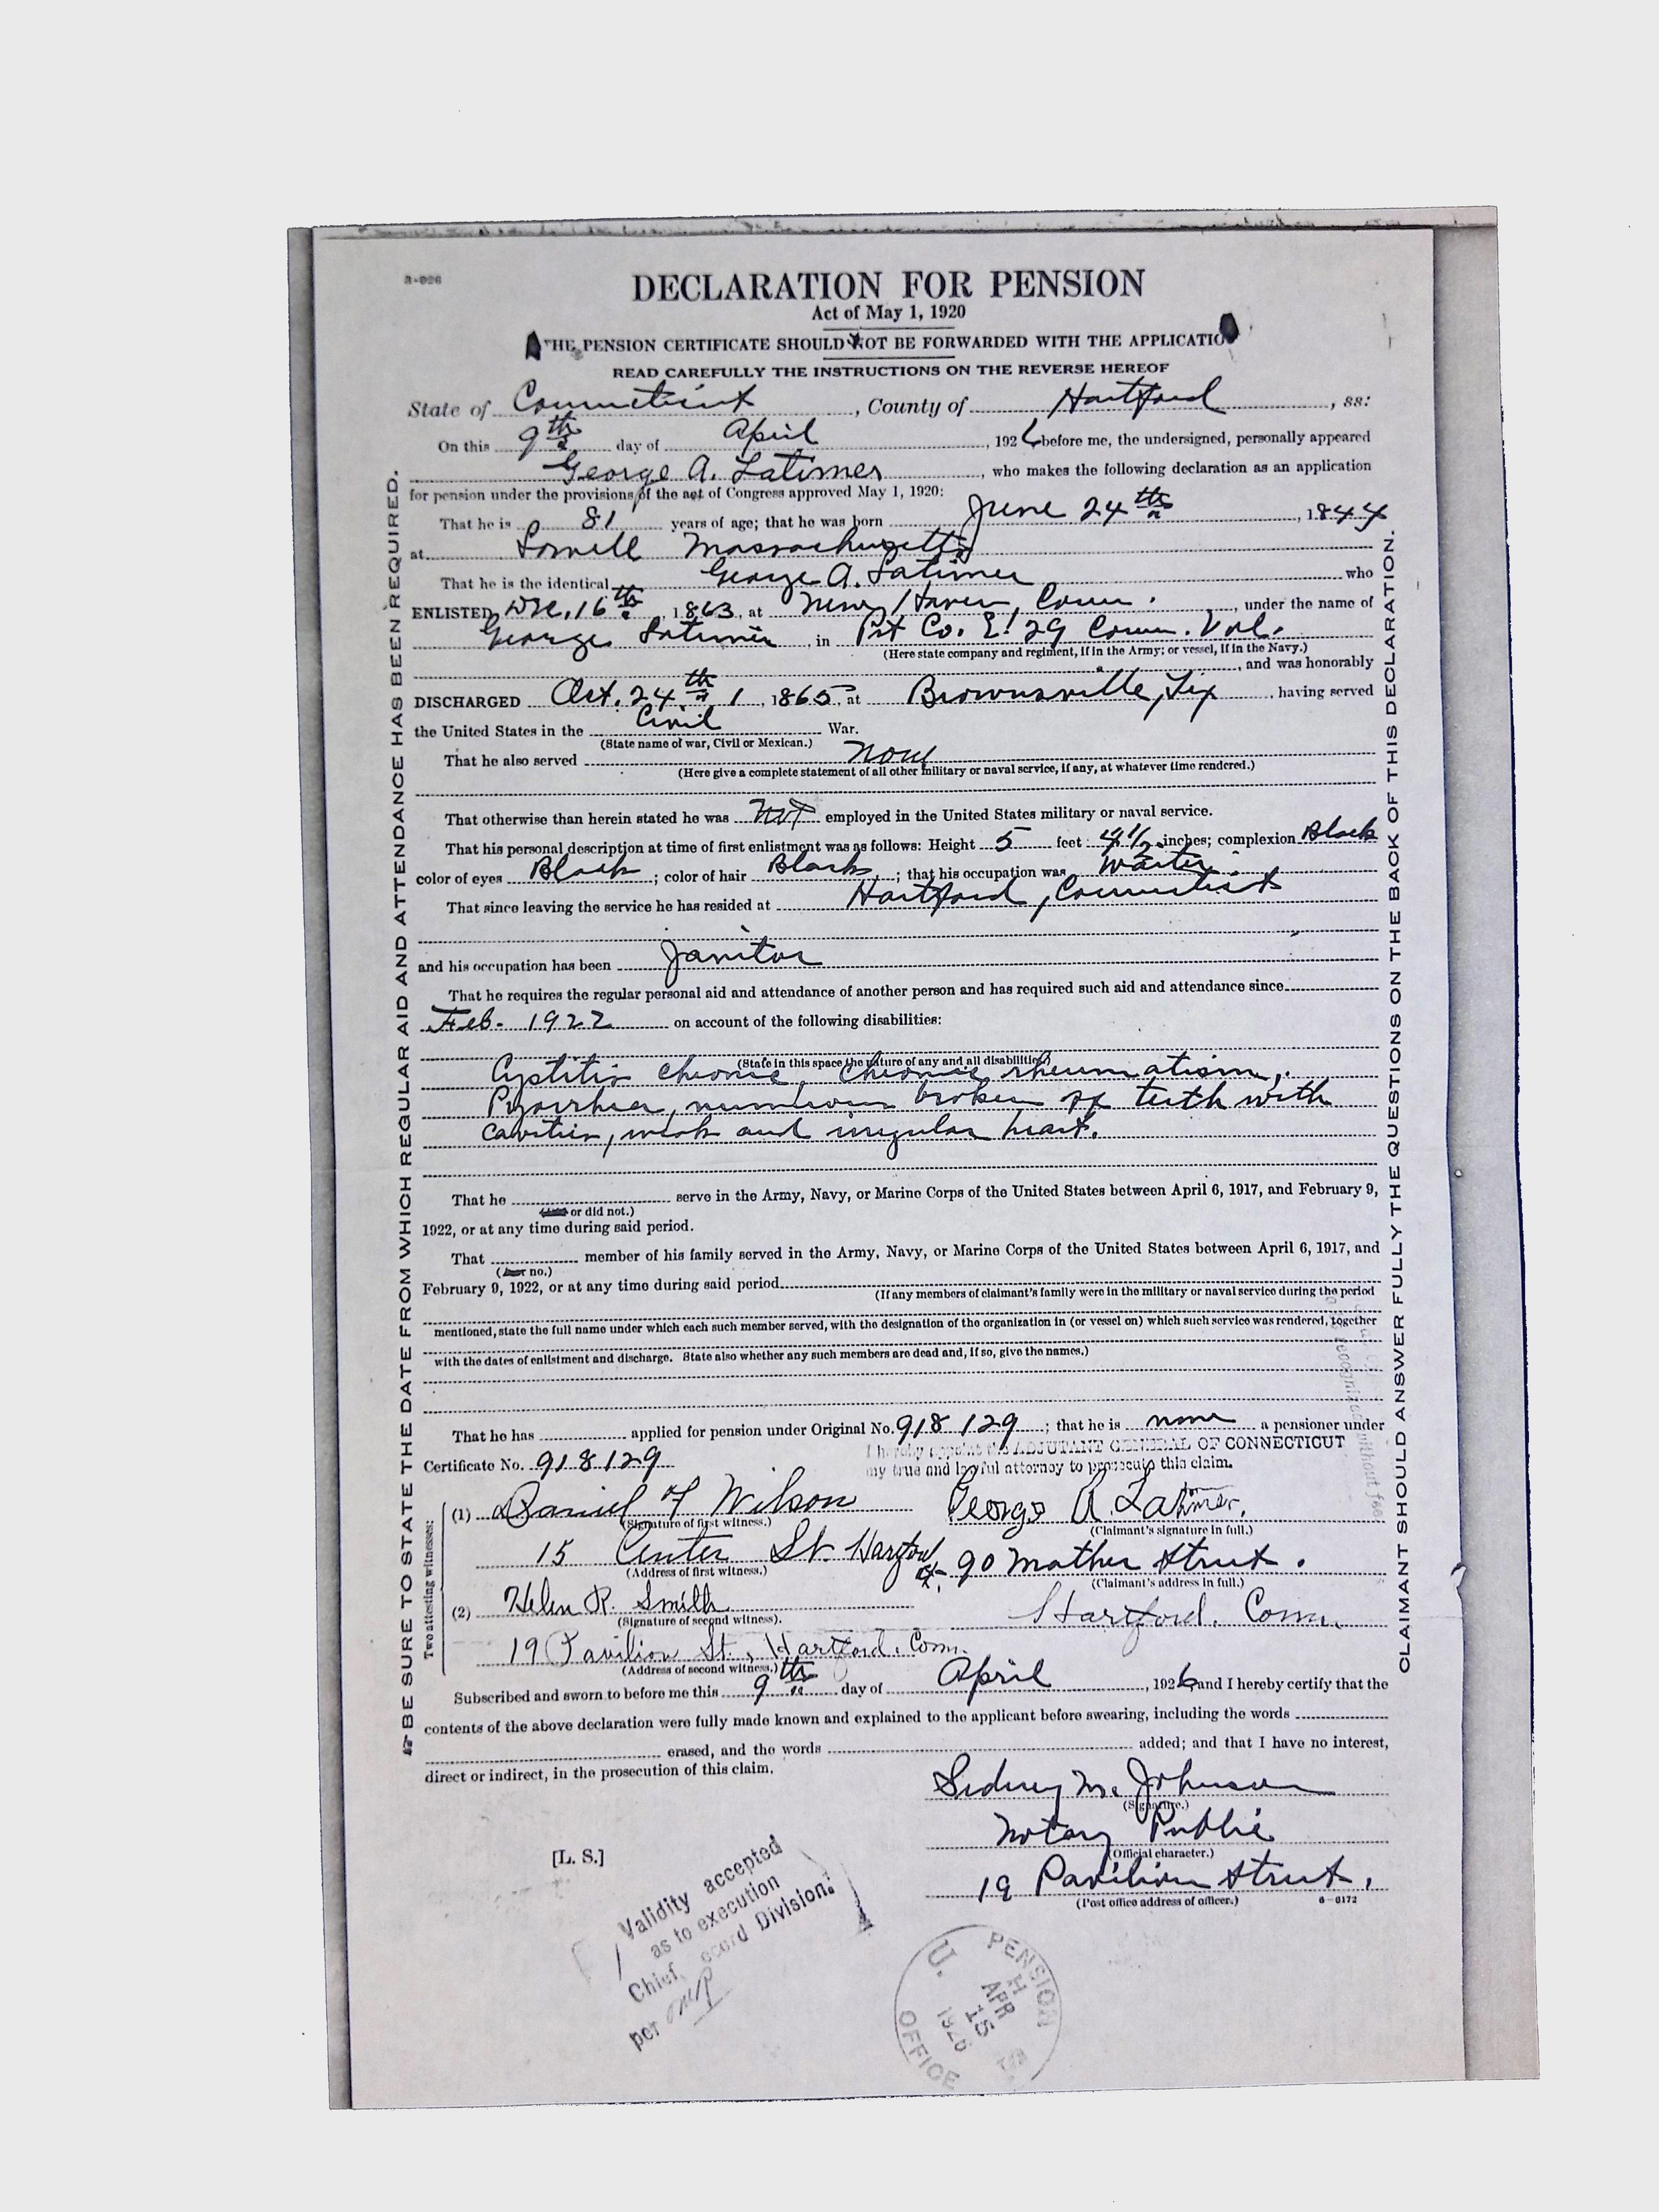 3-026
DECLARATION FOR PENSION
Act of May 1, 1920
THE PENSION CERTIFICATE SHOULD NOT BE FORWARDED WITH THE APPLICATION
READ CAREFULLY THE INSTRUCTIONS ON THE REVERSE HEREOF
State of Connecticut, County of Hartford, ss:
On this 9th day of April, 1926 before me, the undersigned, personally appeared
George A. Latimer, who makes the following declaration as an application
for pension under the provisions of the act of Congress approved May 1, 1920:
That he is 81 years of age; that he was born June 24th, 1844
at Lowell Massachusetts
That he is the identical George A. Latimer who
ENLISTED Dec. 16th, 1863, at New Haven, Conn., under the name of
George Latimer, in Pvt Co. E! 29 Conn. Vol.
(Here state company and regiment, if in the Army; or vessel, if in the Navy.)
, and was honorably
DISCHARGED Oct. 24th, 1865, at Brownsville, Tex, having served
the United States in the Civil War.
(State name of war, Civil or Mexican.)
That he also served none
(Here give a complete statement of all other military or naval service, if any, at whatever time rendered.)
That otherwise than herein stated he was not employed in the United States military or naval service.
That his personal description at time of first enlistment was as follows: Height 5 feet 4 1/2 inches; complexion Black
color of eyes Black; color of hair Black; that his occupation was Waiter
That since leaving the service he has resided at Hartford, Connecticut
and his occupation has been Janitor
That he requires the regular personal aid and attendance of another person and has required such aid and attendance since
Feb. 1922 on account of the following disabilities:
(State in this space the nature of any and all disabilities.)
Cystitis chronic, chronic rheumatism,
Pyorrhea, numerous broken teeth with
cavities, weak and irregular heart.
That he serve in the Army, Navy, or Marine Corps of the United States between April 6, 1917, and February 9,
(or did not.)
1922, or at any time during said period.
That member of his family served in the Army, Navy, or Marine Corps of the United States between April 6, 1917, and
(or no.)
February 9, 1922, or at any time during said period
(If any members of claimant's family were in the military or naval service during the period
mentioned, state the full name under which each such member served, with the designation of the organization in (or vessel on) which such service was rendered, together
with the dates of enlistment and discharge. State also whether any such members are dead and, if so, give the names.)
That he has applied for pension under Original No. 918129; that he is now a pensioner under
Certificate No. 918129
I hereby appoint the ADJUTANT GENERAL OF CONNECTICUT
my true and lawful attorney to prosecute this claim.
Two attesting witnesses:
(1) Daniel F Wilson George A. Latimer,
(Signature of first witness.) (Claimant's signature in full.)
15 Center St Hartford, Ct. 90 Mather Street.
(Address of first witness.) (Claimant's address in full.)
(2) Helen R. Smith Hartford. Conn.
(Signature of second witness).
19 Pavilion St., Hartford. Conn.
(Address of second witness.)
Subscribed and sworn to before me this 9th day of April, 1926 and I hereby certify that the
contents of the above declaration were fully made known and explained to the applicant before swearing, including the words
erased, and the words added; and that I have no interest,
direct or indirect, in the prosecution of this claim.
Sidney M. Johnson
(Signature.)
Notary Public
(Official character.)
19 Pavilion Street,
(Post office address of officer.) 6-6172
[L. S.]
Validity accepted
as to execution
Chief, ecord Division:
per
U. PENSION OFFICE
APR 15 1926
BE SURE TO STATE THE DATE FROM WHICH REGULAR AID AND ATTENDANCE HAS BEEN REQUIRED.
CLAIMANT SHOULD ANSWER FULLY THE QUESTIONS ON THE BACK OF THIS DECLARATION.